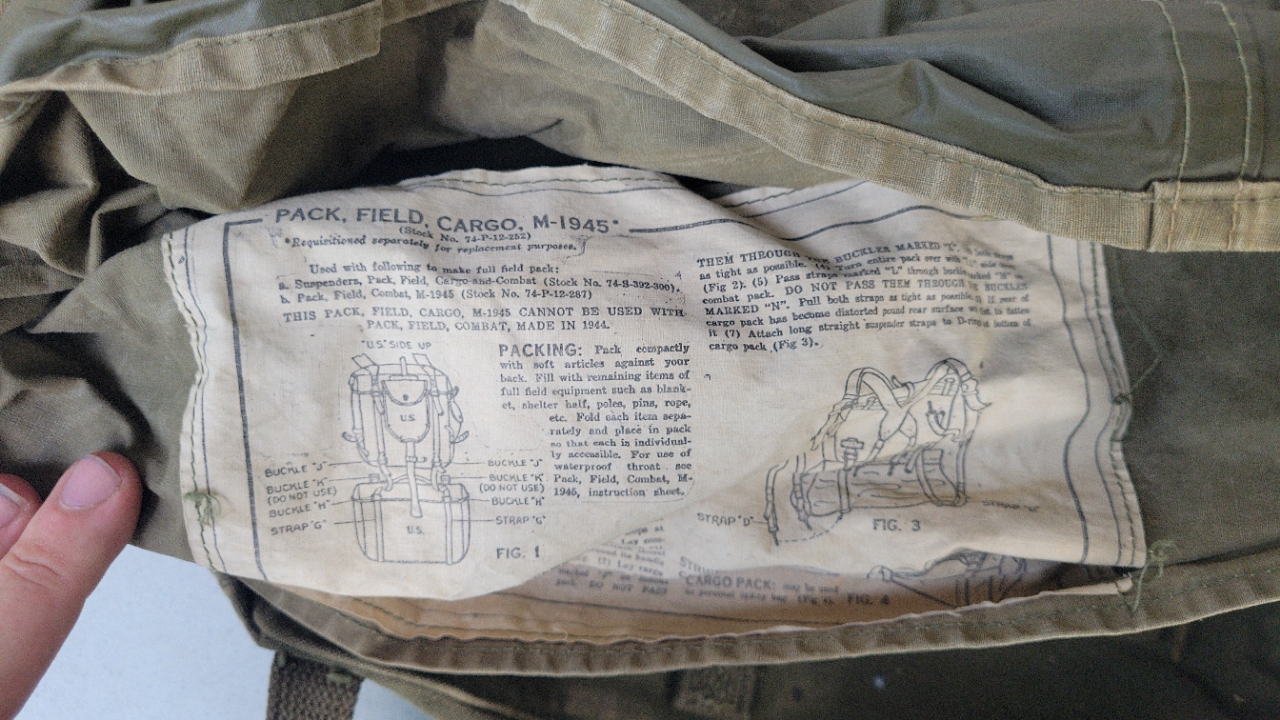 PACK, FIELD, CARGO, M-1945*
(Stock No. 74-P-12-252)
*Requisitioned separately for replacement purposes.
Used with following to make full field pack:
a. Suspenders, Pack, Field, Cargo-and-Combat (Stock No. 74-S-392-300).
b. Pack, Field, Combat, M-1945 (Stock No. 74-P-12-287)
THIS PACK, FIELD, CARGO, M-1945 CANNOT BE USED WITH
PACK, FIELD, COMBAT, MADE IN 1944.
"U.S." SIDE UP
U.S.
BUCKLE "J"
BUCKLE "K"
(DO NOT USE)
BUCKLE "H"
STRAP "G"
BUCKLE "J"
BUCKLE "K"
(DO NOT USE)
BUCKLE "H"
STRAP "G"
U.S.
FIG. 1
PACKING: Pack compactly
with soft articles against your
back. Fill with remaining items of
full field equipment such as blank-
et, shelter half, poles, pins, rope,
etc. Fold each item sepa-
rately and place in pack
so that each is individual-
ly accessible. For use of
waterproof throat see
Pack, Field, Combat, M-
1945, instruction sheet.
THEM THROUGH THE BUCKLES MARKED
as tight as possible. Turn entire pack over with side
(Fig 2). (5) Pass straps marked "L" through buckles marked "M"
combat pack. DO NOT PASS THEM THROUGH BUCKLES
MARKED "N". Pull both straps as tight as possible. If rear of
cargo pack has become distorted pound rear surface to flatten
it (7) Attach long straight suspender straps to D-rings at bottom of
cargo pack (Fig 3).
STRAP "D"
STRAP
FIG. 3
DO NOT PASS
CARGO PACK: may be used
FIG. 4